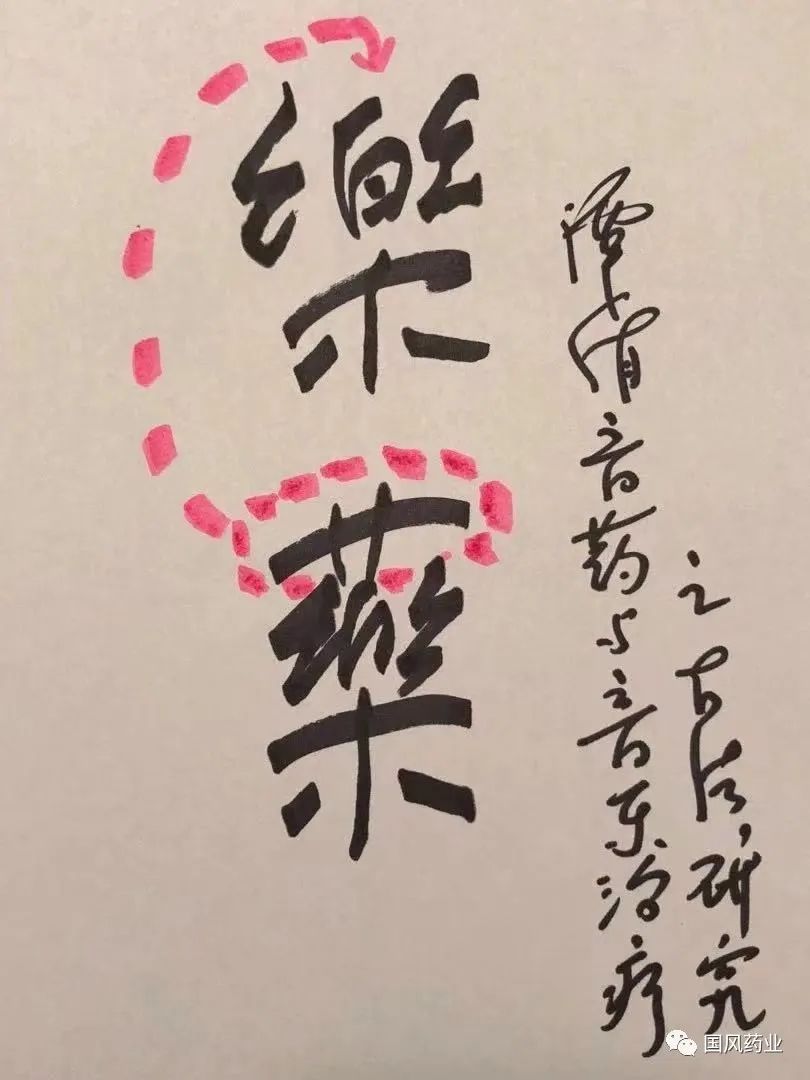 樂
藥
谭盾音药与音乐治疗
之古法研究
国风药业